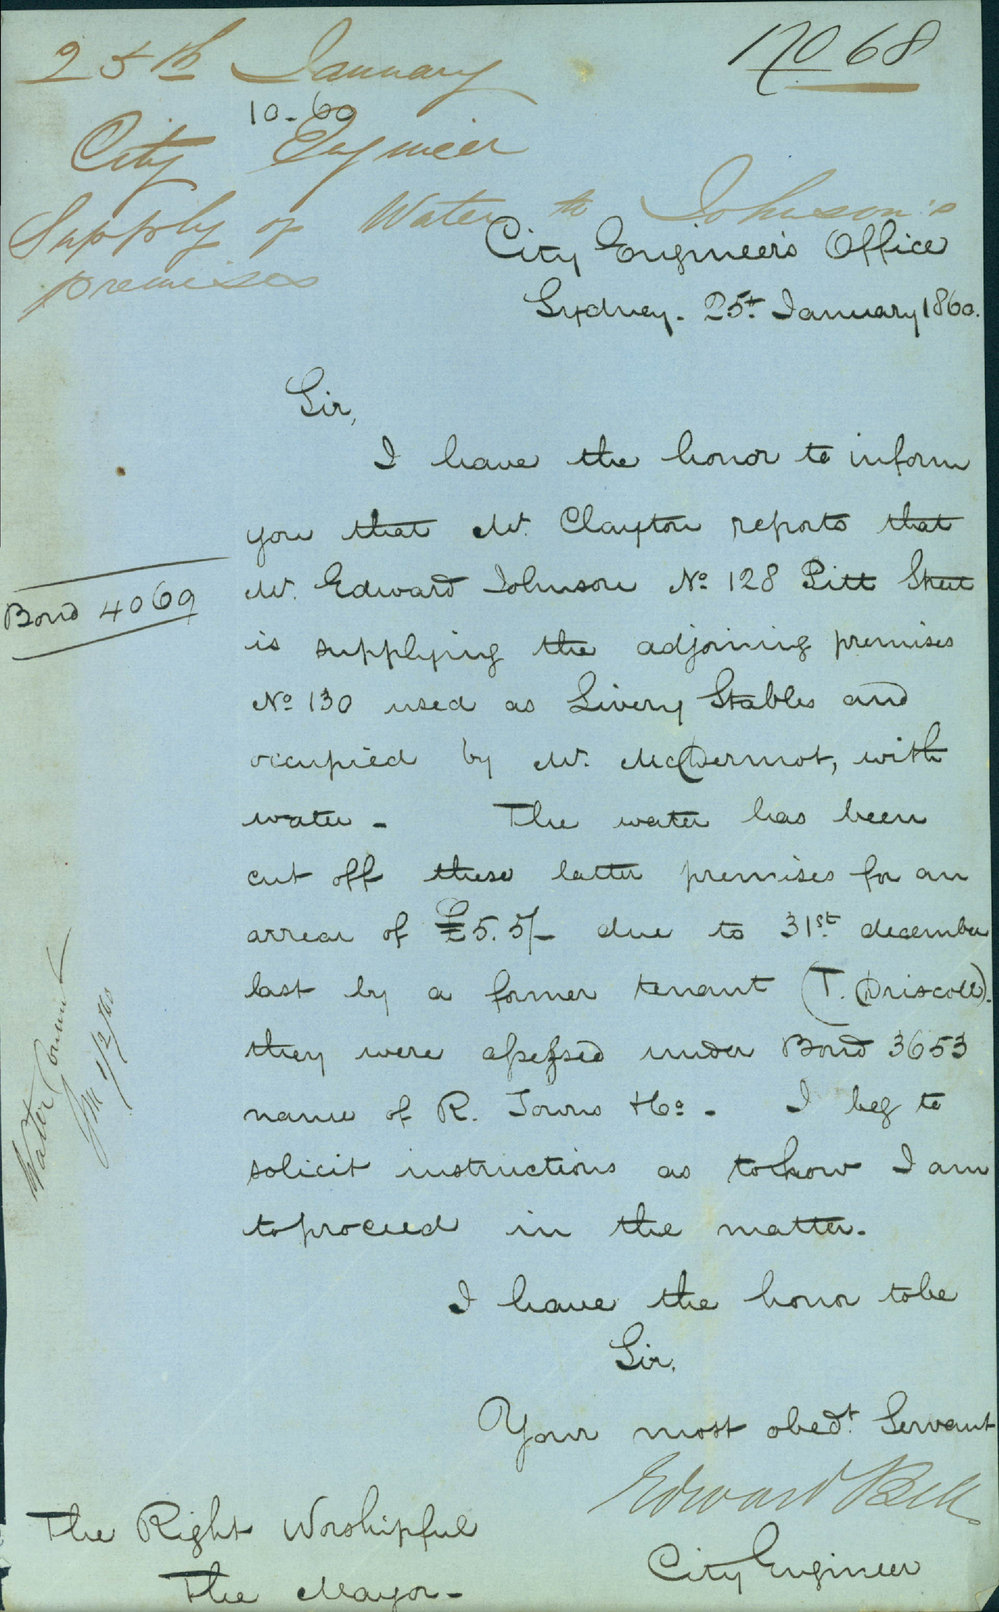 25th January
No 68
10-60
City Engineer
Supply of Water to Johnson's
premises
City Engineer's Office
Sydney. 25t January 1860.
Sir,
I have the honor to inform
you that Mr. Clayton reports that
Mr. Edward Johnson No. 128 Pitt Street
is supplying the adjoining premises
No. 130 used as Livery Stables and
occupied by Mr. McDermot, with
water - The water has been
cut off these latter premises for an
arrear of £5.5/- due to 31st. december
last by a former tenant (T. Driscoll).
they were assessed under Bond 3653
name of R. Towns & Co. - I beg to
solicit instructions as to how I am
to proceed in the matter.
I have the honor to be
Sir,
Your most obedt. Servant
Edward Bell
City Engineer
The Right Worshipful
The Mayor -
Bond 4069
Water Committ
1/2/60